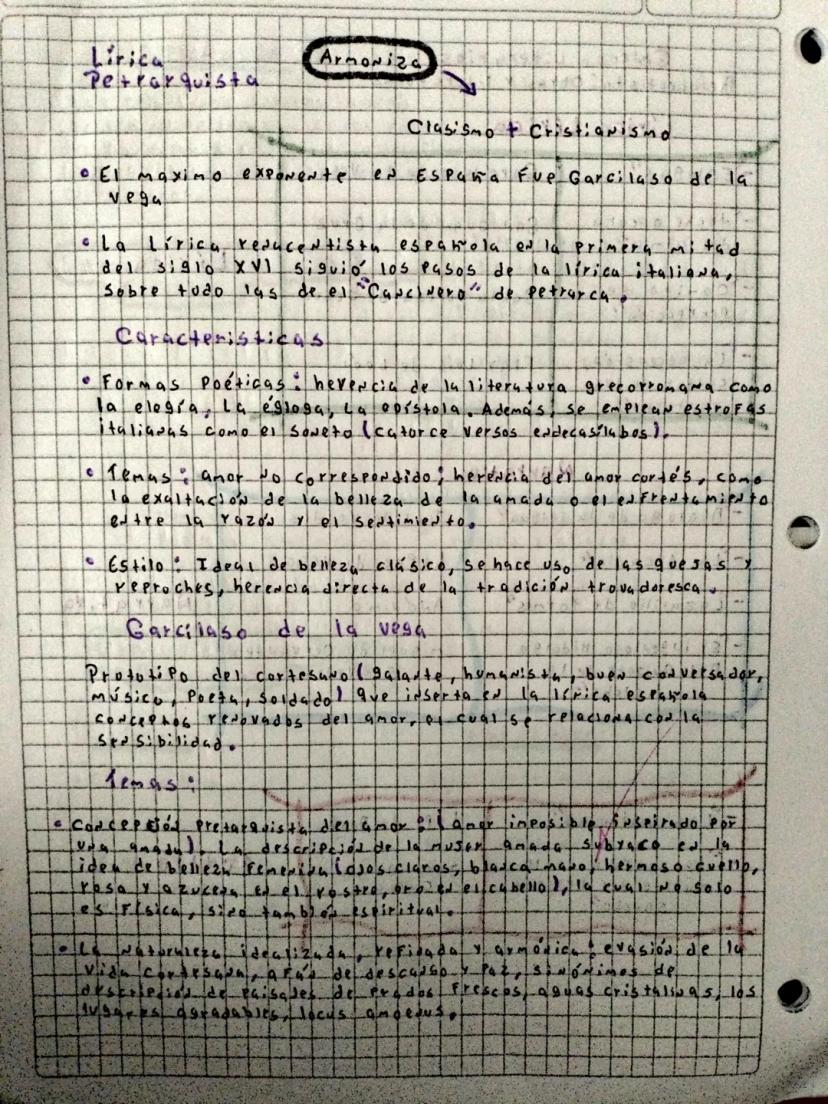 Lírica
Petrarquista
Armoniza
Clasismo + Cristianismo
• El maximo exponente en España fue Garcilaso de la
vega
• La Lírica renacentista española en la primera mitad
del siglo XVI siguió los pasos de la lírica italiana,
sobre todo las de el "Cancinero" de petrarca.
Caracteristicas
• Formas Poéticas: herencia de la literatura grecorromana como
la elogía, La égloga, La epístola. Además, se emplean estrofas
italianas como el soneto (catorce versos endecasílabos).
• Temas: amor no correspondido; herencia del amor cortés, como
la exaltación de la belleza de la amada o el enfrentamiento
entre la razón y el sentimiento.
• Estilo: Ideal de belleza clásico, se hace uso de las quesas y
reproches, herencia directa de la tradición trovadoresca.
Garcilaso de la vega
Prototipo del cortesano (galante, humanista, buen conversador,
músico, Poeta, soldado) que inserta en la lírica española
conceptos renovados del amor, el cual se relaciona con la
sensibilidad.
Temas:
• Concepción Pretarquista del amor: (amor imposible inspirado por
una amada). La descripción de la muser amada subyace en la
idea de belleza femenina (osos claros, blanca mano, hermoso cuello,
rosa y azucena en el rostro, oro en el cabello), la cual no solo
es física, sino también espiritual.
• La naturaleza idealizada, refinada y armónica: evasión de la
vida cortesana, afán de descanso y Paz, sinónimos de
descripción de paisades de prados frescos, aguas cristalinas, los
lugares agradables, locus amoenus.